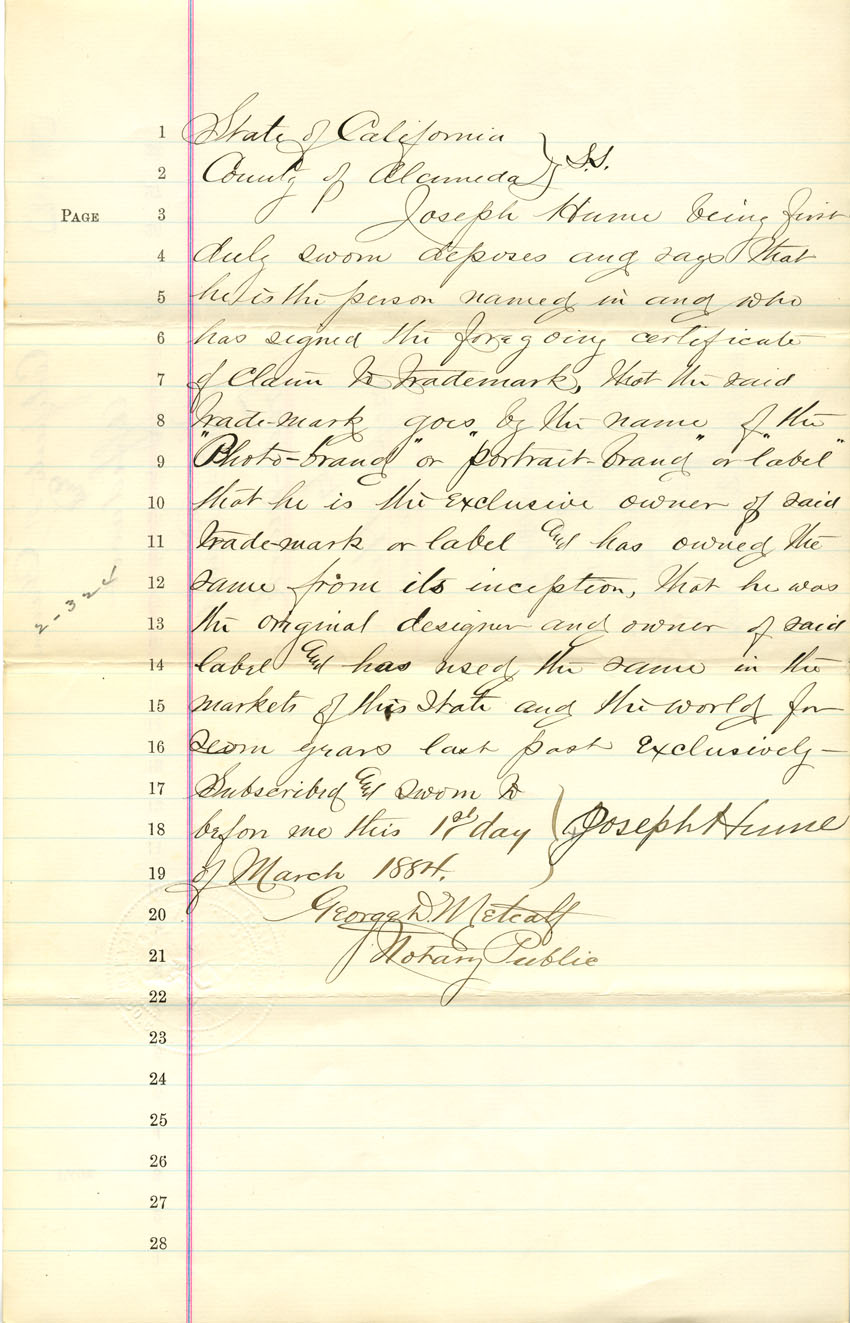 1 State of California }
2 County of Alameda } S.S.
PAGE 3 Joseph Hume being first
4 duly sworn deposes and says that
5 he is the person named in and who
6 has signed the foregoing certificate
7 of Claim to Trademark, that the said
8 trade-mark goes by the name of the
9 "Photo-brand" or "portrait-brand" or "label"
10 that he is the exclusive owner of said
11 trade-mark or label and has owned the
12 same from its inception, that he was
2-324
13 the original designer and owner of said
14 label and has used the same in the
15 markets of this State and the world for
16 years last past exclusively—
17 Subscribed and sworn to
18 before me this 1st day } Joseph Hume
19 of March 1884.
20 George D. Metcalf
21 Notary Public
22
23
24
25
26
27
28